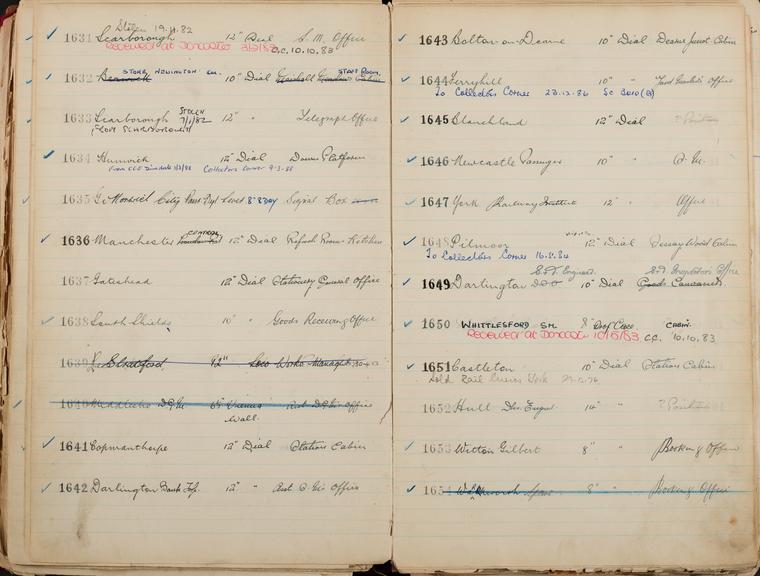 Stolen 19.11.82
1631 Scarborough 12" Dial S. M. Office
Received at Doncaster C.C. 10.10.83
1632 STOKE NEWINGTON 10" Dial STAFF ROOM
1633 Scarborough STOLEN 7/1/82 12" " Telegraph Office
FROM SCARBOROUGH
1634 Hunwick 12" Dial Down Platform
Collectors Corner 9-3-88
1635 Norwich City 8 Day Signal Box
1636 Manchester CENTRAL 12" Dial Refresh Room - Kitchen
1637 Gateshead 12" Dial Stationery General Office
1638 South Shields 10" " Goods Receiving Office
1639 Stratford 12" Loco Works Manager
1640 Middlesbro D.G.M. Office
Wall
1641 Copmanthorpe 12" Dial Station Cabin
1642 Darlington Bank Top 12" " Office
1643 Bolton-on-Dearne 10" Dial Dearne Junct Cabin
1644 Ferryhill 10" " Yard Office
To Collectors Corner 23.12.86
1645 Blanchland 12" Dial ? Position
1646 Newcastle Passenger 10" "
1647 York Railway Institute 12" " Office
1648 Pilmoor 12" Dial Sessay Wood Cabin
To Collectors Corner
S.T. Engineer S.T. Inspectors Office
1649 Darlington 10" Dial Goods
1650 WHITTLESFORD STN. 8" CABIN.
Received at Doncaster 10/5/83. C.C. 10.10.83
1651 Castleton 10" Dial Station Cabin
Sold Rail York
1652 Hull 14" " ? Position
1653 Witton Gilbert 8" " Booking Office
1654 8" " Booking Office